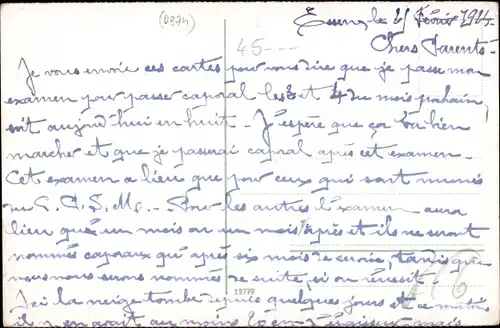 (0374)
45---
Essen, le 25 Février 1924.
Chers Parents
Je vous envoie ces cartes pour vous dire que je passe mon
examen pour passer caporal les 3 et 4 du mois prochain,
soit aujourd'hui en huit. J'espère que ça va bien
marcher et que je passerai caporal après cet examen.
Cet examen a lieu que pour ceux qui sont munis
du C.P.S.M. - Pour les autres l'examen aura
lieu que un mois ou un mois après et ils ne seront
nommés caporaux qu'après six mois de service, tandis que
nous nous serons nommés de suite, si on réussit.
Ici la neige tombe depuis quelques jours et ce matin
il y en avait au moins
13779